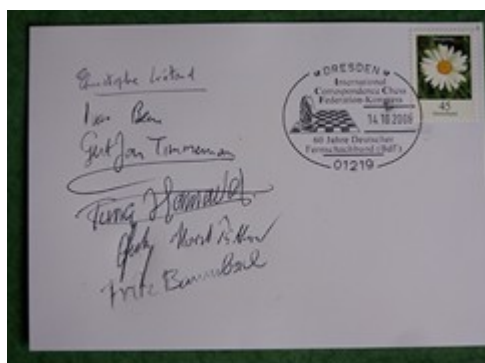 Christophe Léotard
Ivar Bern
Gert Jan Timmerman
Horst Rittner
Fritz Baumbach
DRESDEN
International
Correspondence Chess
Federation-Kongress
14.10.2006
60 Jahre Deutscher
Fernschachbund (BdF)
01219
45